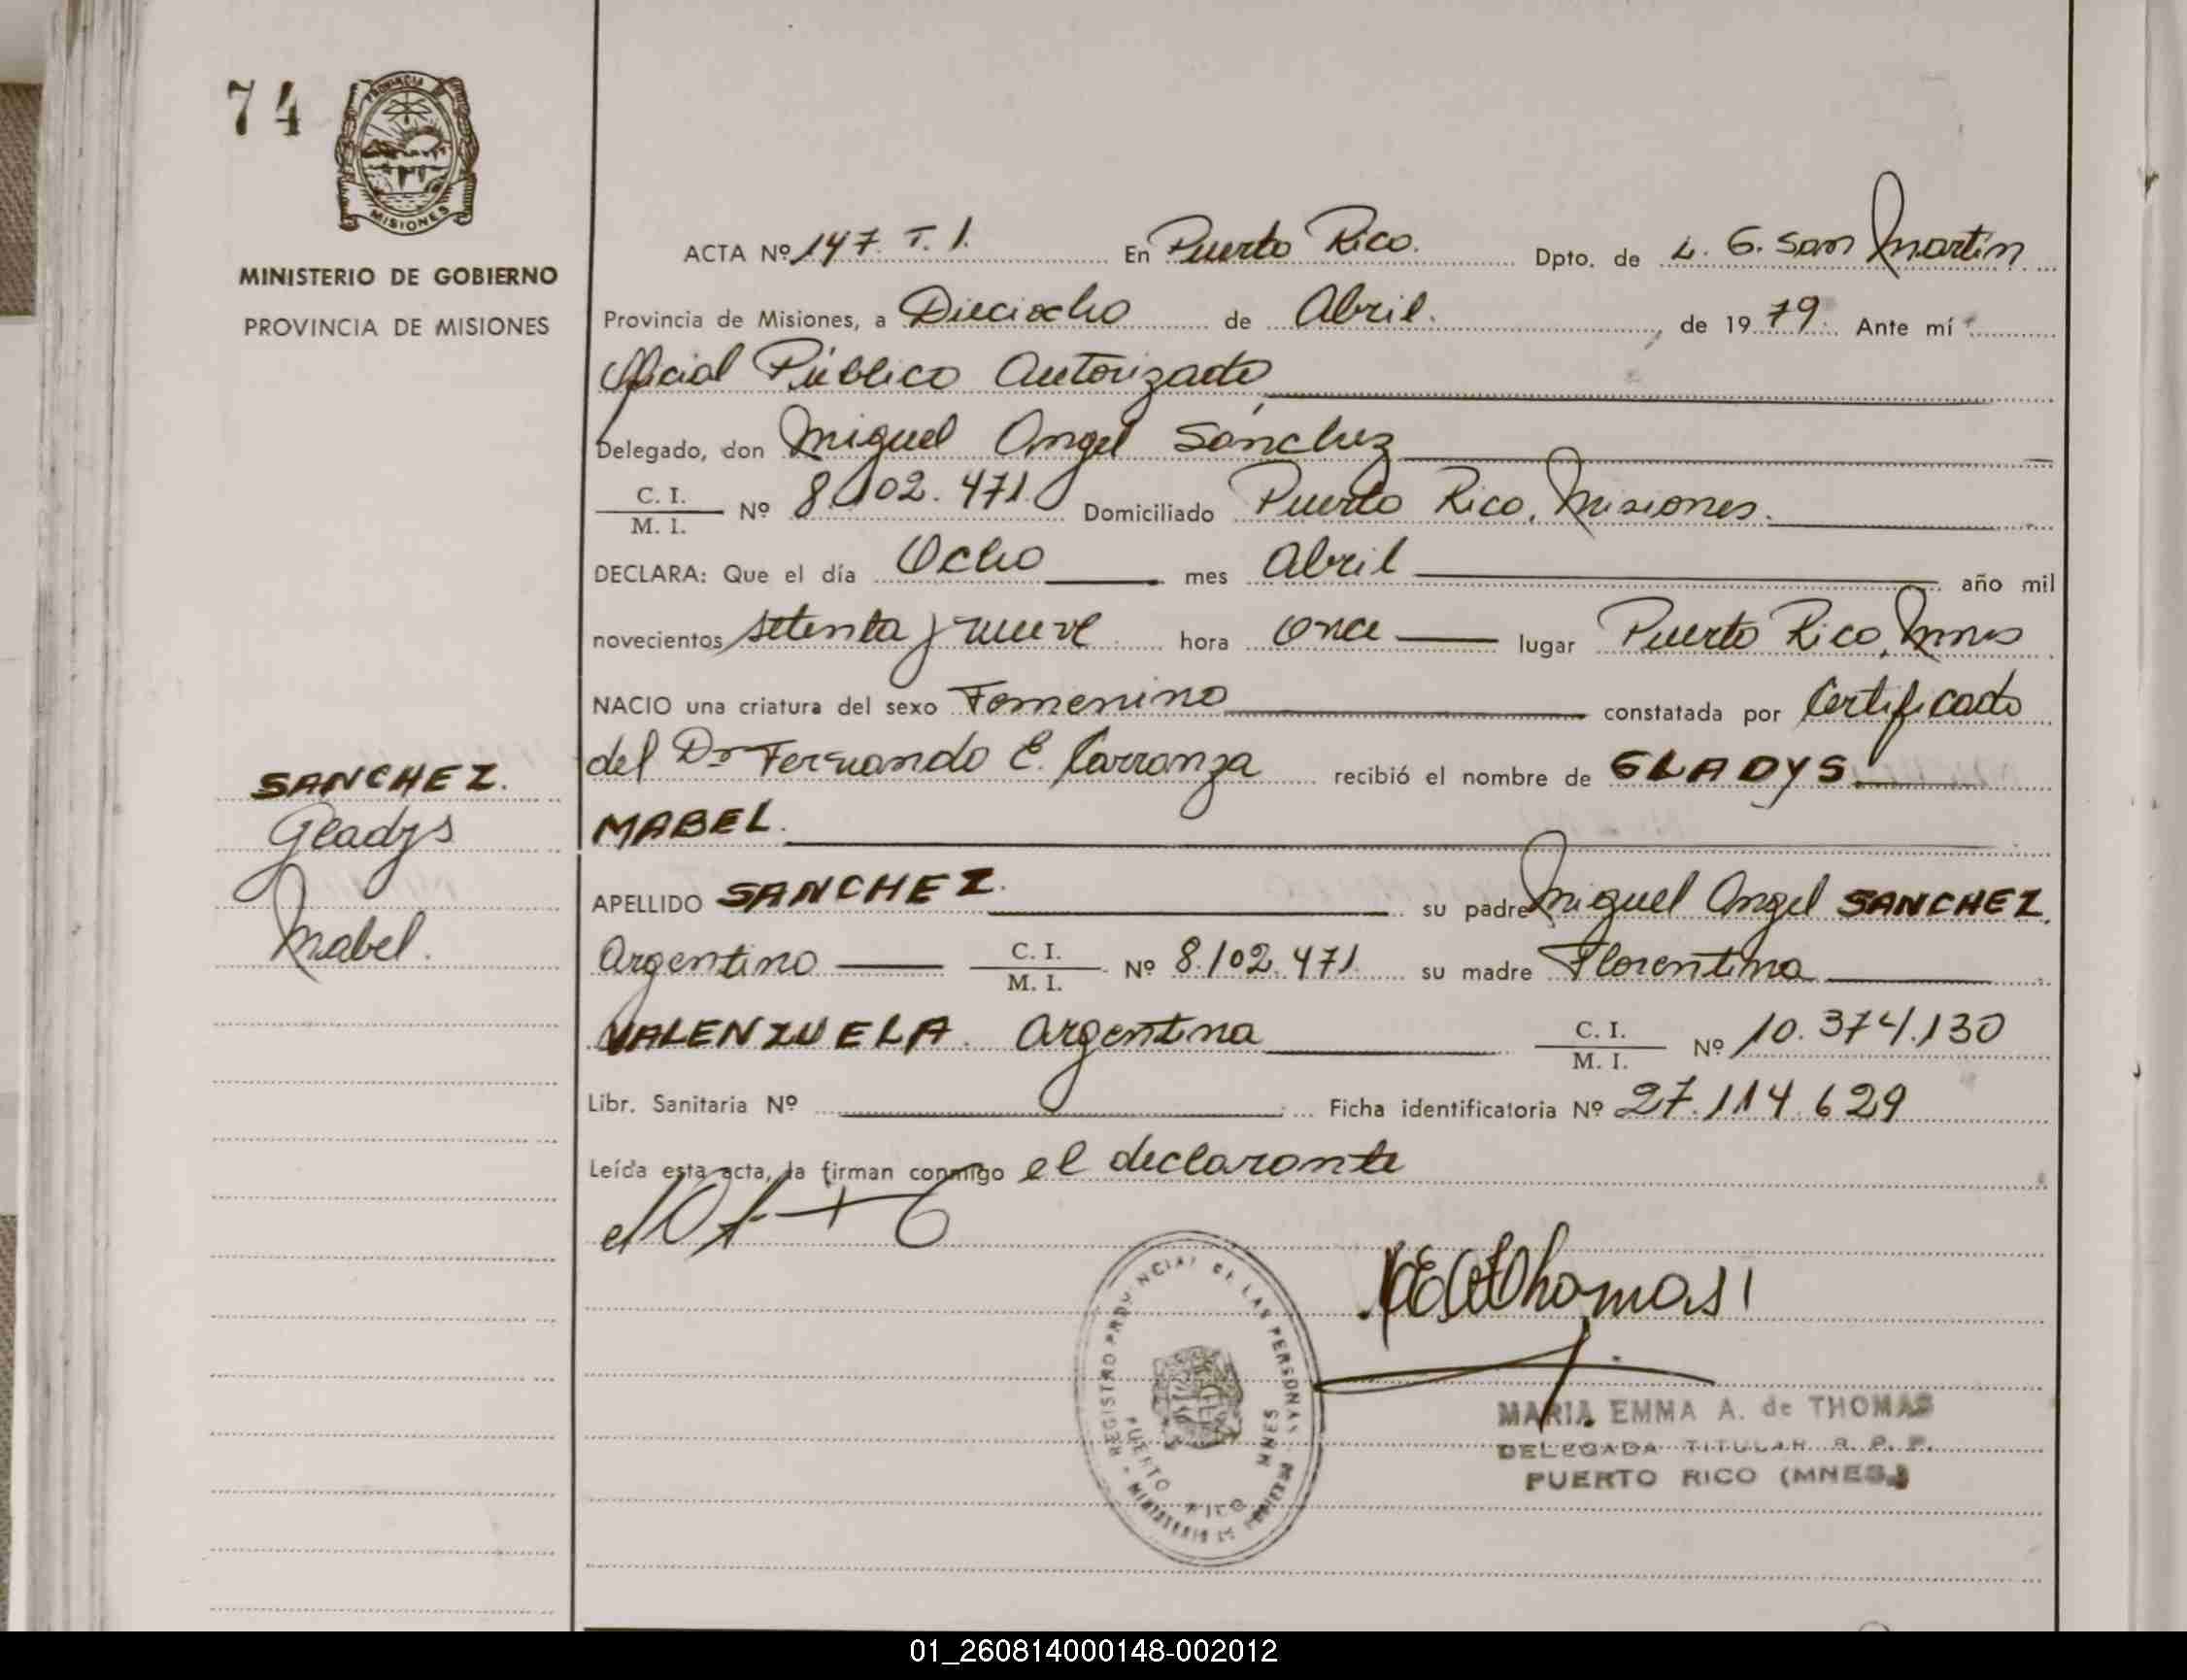 74
PROVINCIA
MISIONES
MINISTERIO DE GOBIERNO
PROVINCIA DE MISIONES
SANCHEZ.
Gladys
Mabel.
ACTA Nº 147. T. I. En Puerto Rico. Dpto. de L. G. San Martín
Provincia de Misiones, a Dieciocho de Abril. , de 1979. Ante mí
Oficial Público Autorizado
Delegado, don Miguel Angel Sánchez
C. I.
M. I. Nº 8.102.471. Domiciliado Puerto Rico, Misiones.
DECLARA: Que el día Ocho mes Abril año mil
novecientos setenta y nueve hora once lugar Puerto Rico, Mnes
NACIO una criatura del sexo Femenino constatada por Certificado
del Dr Fernando E. Carranza recibió el nombre de GLADYS
MABEL.
APELLIDO SANCHEZ. su padre Miguel Angel SANCHEZ.
Argentino C. I.
M. I. Nº 8.102.471 su madre Florentina
VALENZUELA. Argentina C. I.
M. I. Nº 10.374.130
Libr. Sanitaria Nº Ficha identificatoria Nº 27.114.629
Leída esta acta, la firman conmigo el declarante
REGISTRO PROVINCIAL DE LAS PERSONAS
PUERTO RICO MNES
MINISTERIO DE GOBIERNO
MARIA EMMA A. de THOMAS
DELEGADA TITULAR R. P. P.
PUERTO RICO (MNES.)
01_260814000148-002012